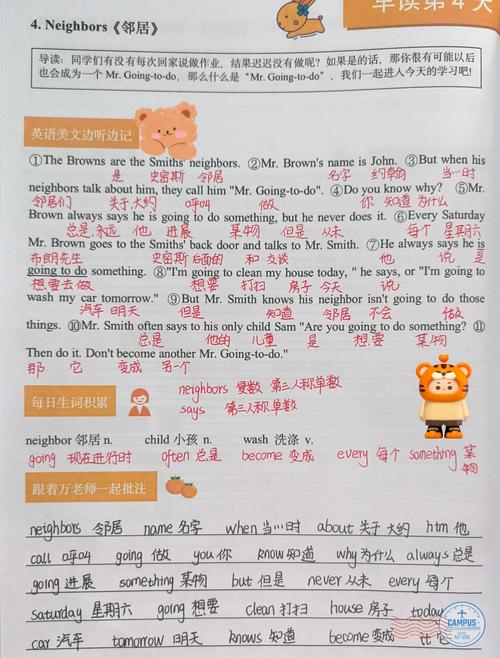 早读第4天
4. Neighbors《邻居》
导读：同学们有没有每次回家说做作业，结果迟迟没有做呢？如果是的话，那你很有可能以后
也会成为一个 Mr. Going-to-do，那么什么是“Mr. Going-to-do”，我们一起进入今天的学习吧!
英语美文边听边记
①The Browns are the Smiths' neighbors. ②Mr. Brown's name is John. ③But when his
是 史密斯 邻居 名字 约翰 当…时
neighbors talk about him, they call him "Mr. Going-to-do". ④Do you know why? ⑤Mr.
邻居们 关于大约 呼叫 做 你 知道 为什么
Brown always says he is going to do something, but he never does it. ⑥Every Saturday
总是,永远 他 进展 某物 但是 从未 每个 星期六
Mr. Brown goes to the Smiths' back door and talks to Mr. Smith. ⑦He always says he is
布朗先生 史密斯 后面的 和 交谈 他 说 是
going to do something. ⑧"I'm going to clean my house today, " he says, or "I'm going to
想要去做 想要 打扫 房子 今天 说
wash my car tomorrow." ⑨But Mr. Smith knows his neighbor isn't going to do those
汽车 明天 但是 知道 邻居 不会 做
things. ⑩Mr. Smith often says to his only child Sam "Are you going to do something? ⑪
总是 他的 儿童 是 想要 某物
Then do it. Don't become another Mr. Going-to-do."
那 它 变成 另一个
neighbors 复数 第三人称单数
每日生词积累
says 第三人称单数
neighbor 邻居 n. child 小孩 n. wash 洗涤 v.
going 现在进行时 often 总是 become 变成 every 每个 something 某物
跟着万老师一起批注
neighbors 邻居 name 名字 when 当…时 about 关于 大约 him 他
call 呼叫 going 做 you 你 know 知道 why 为什么 always 总是
going 进展 something 某物 but 但是 never 从未 every 每个
saturday 星期六 going 想要 clean 打扫 house 房子 today
car 汽车 tomorrow 明天 knows 知道 become 变成
CAMPUS